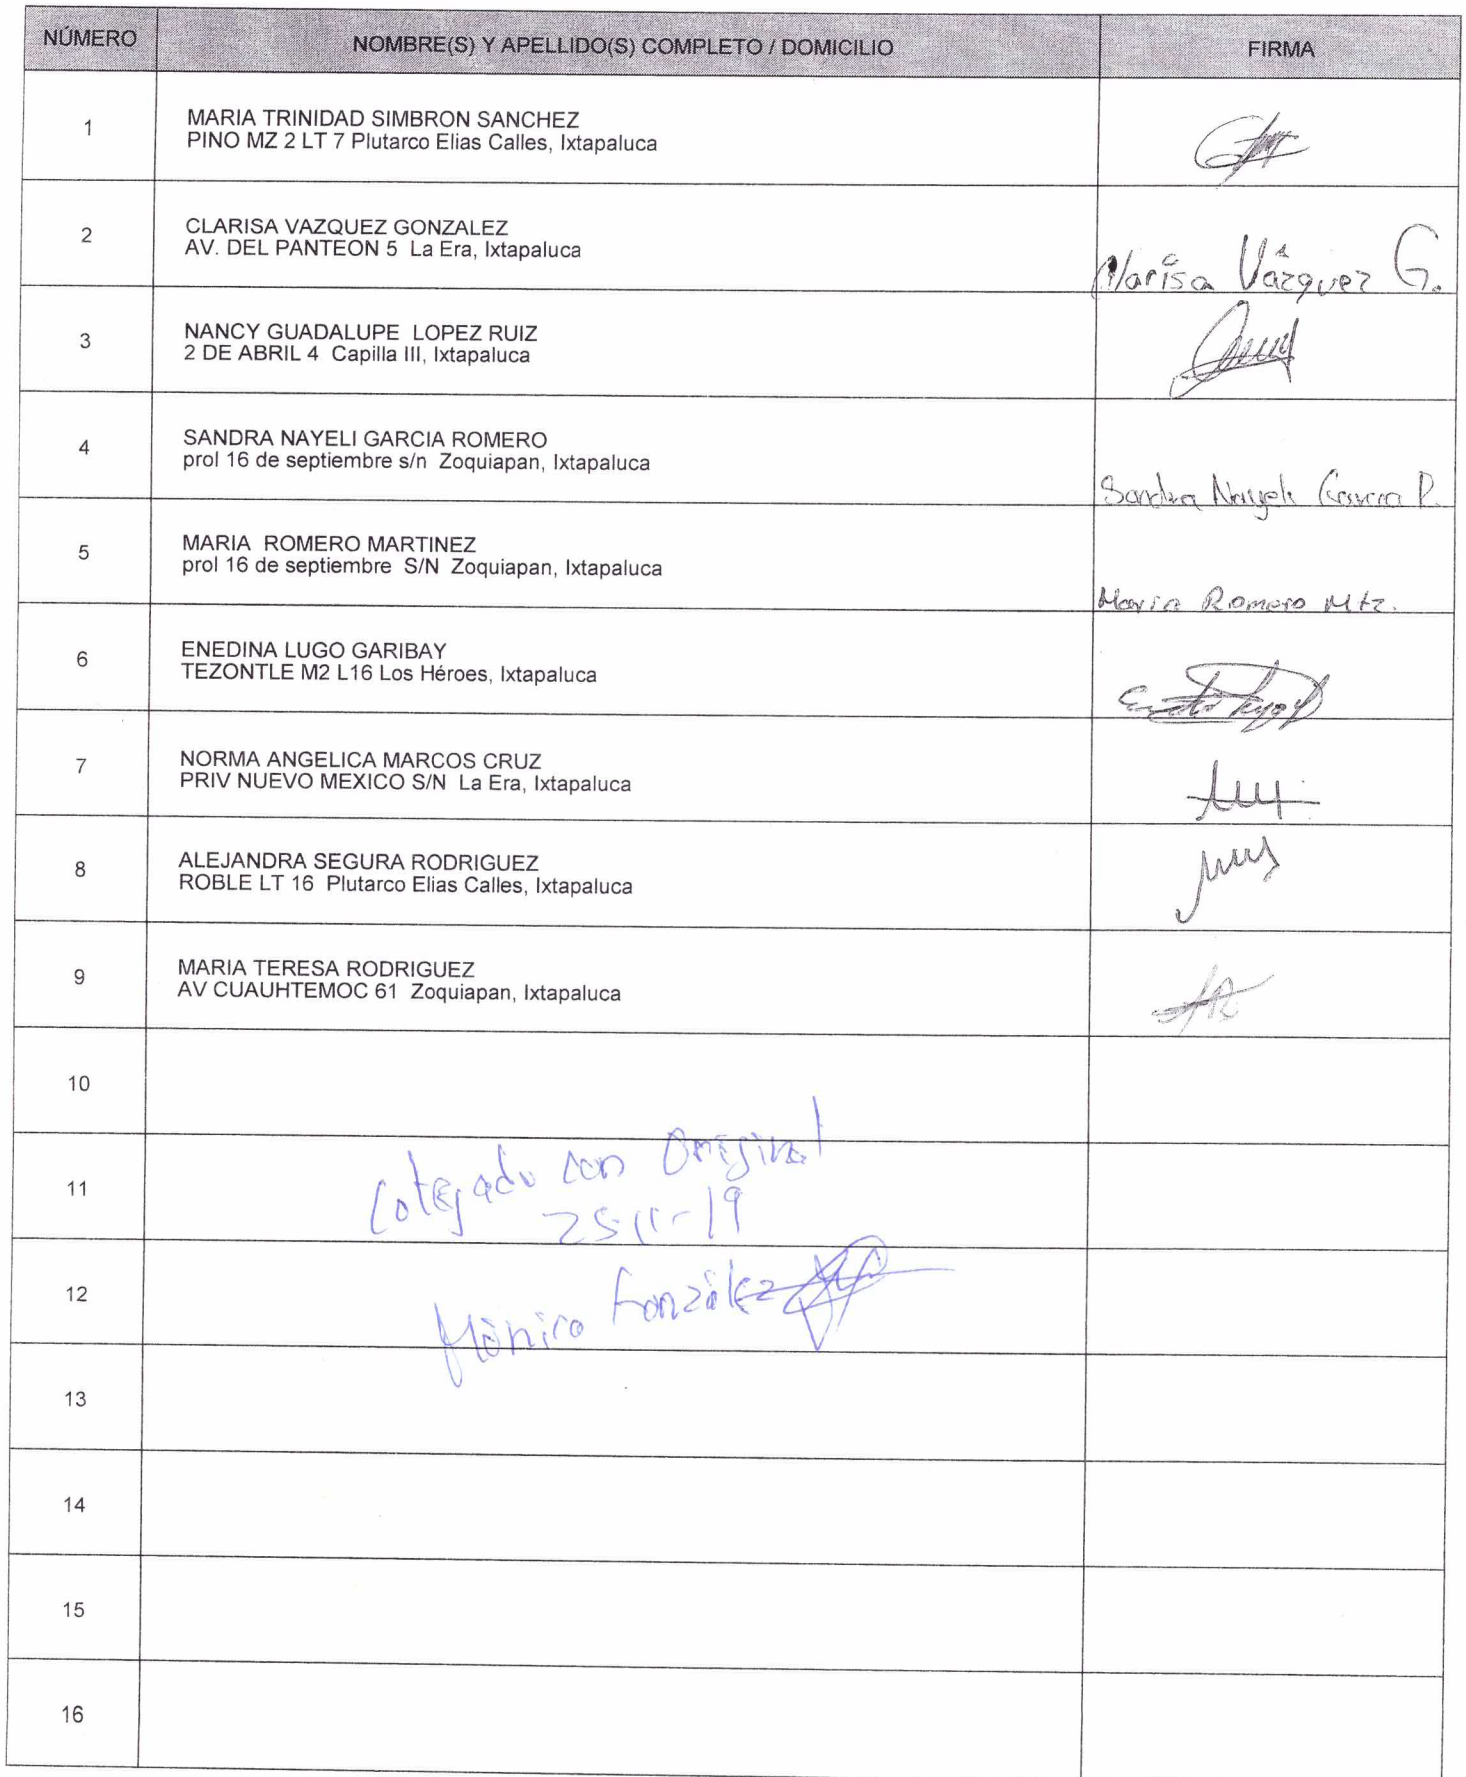 NÚMERO NOMBRE(S) Y APELLIDO(S) COMPLETO / DOMICILIO FIRMA
1 MARIA TRINIDAD SIMBRON SANCHEZ
PINO MZ 2 LT 7 Plutarco Elias Calles, Ixtapaluca
2 CLARISA VAZQUEZ GONZALEZ
AV. DEL PANTEON 5 La Era, Ixtapaluca
Clarisa Vázquez G.
3 NANCY GUADALUPE LOPEZ RUIZ
2 DE ABRIL 4 Capilla III, Ixtapaluca
4 SANDRA NAYELI GARCIA ROMERO
prol 16 de septiembre s/n Zoquiapan, Ixtapaluca
Sandra Nayeli Garcia R.
5 MARIA ROMERO MARTINEZ
prol 16 de septiembre S/N Zoquiapan, Ixtapaluca
Maria Romero Mtz.
6 ENEDINA LUGO GARIBAY
TEZONTLE M2 L16 Los Héroes, Ixtapaluca
7 NORMA ANGELICA MARCOS CRUZ
PRIV NUEVO MEXICO S/N La Era, Ixtapaluca
8 ALEJANDRA SEGURA RODRIGUEZ
ROBLE LT 16 Plutarco Elias Calles, Ixtapaluca
9 MARIA TERESA RODRIGUEZ
AV CUAUHTEMOC 61 Zoquiapan, Ixtapaluca
10
Cotejado con Original
11
25-11-19
12
Mónica González
13
14
15
16